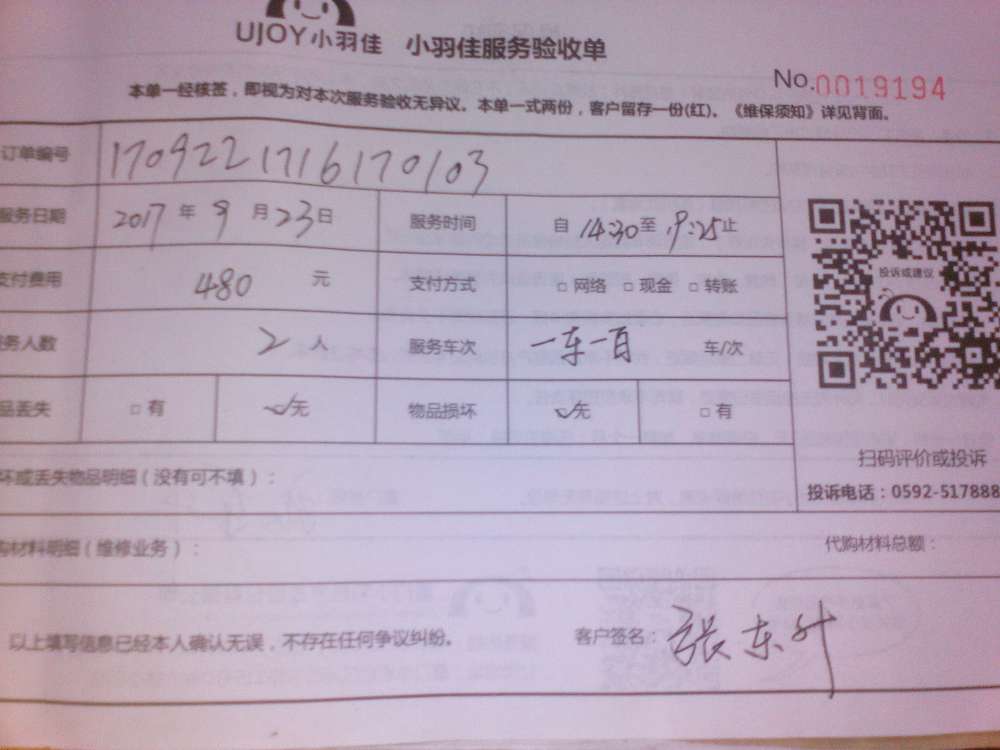 UJOY小羽佳 小羽佳服务验收单
No.0019194
本单一经核签，即视为对本次服务验收无异议。本单一式两份，客户留存一份(红)。《维保须知》详见背面。
订单编号 170922171617 0103
服务日期 2017年9月23日 服务时间 自14:30至19:25止
支付费用 480 元 支付方式 □网络 □现金 □转账
务人数 2 人 服务车次 一车一百 车/次
品丢失 □有 ☑无 物品损坏 ☑无 □有
投诉或建议
扫码评价或投诉
投诉电话：0592-517888
坏或丢失物品明细（没有可不填）：
购材料明细（维修业务）： 代购材料总额：
以上填写信息已经本人确认无误，不存在任何争议纠纷。 客户签名：张东升